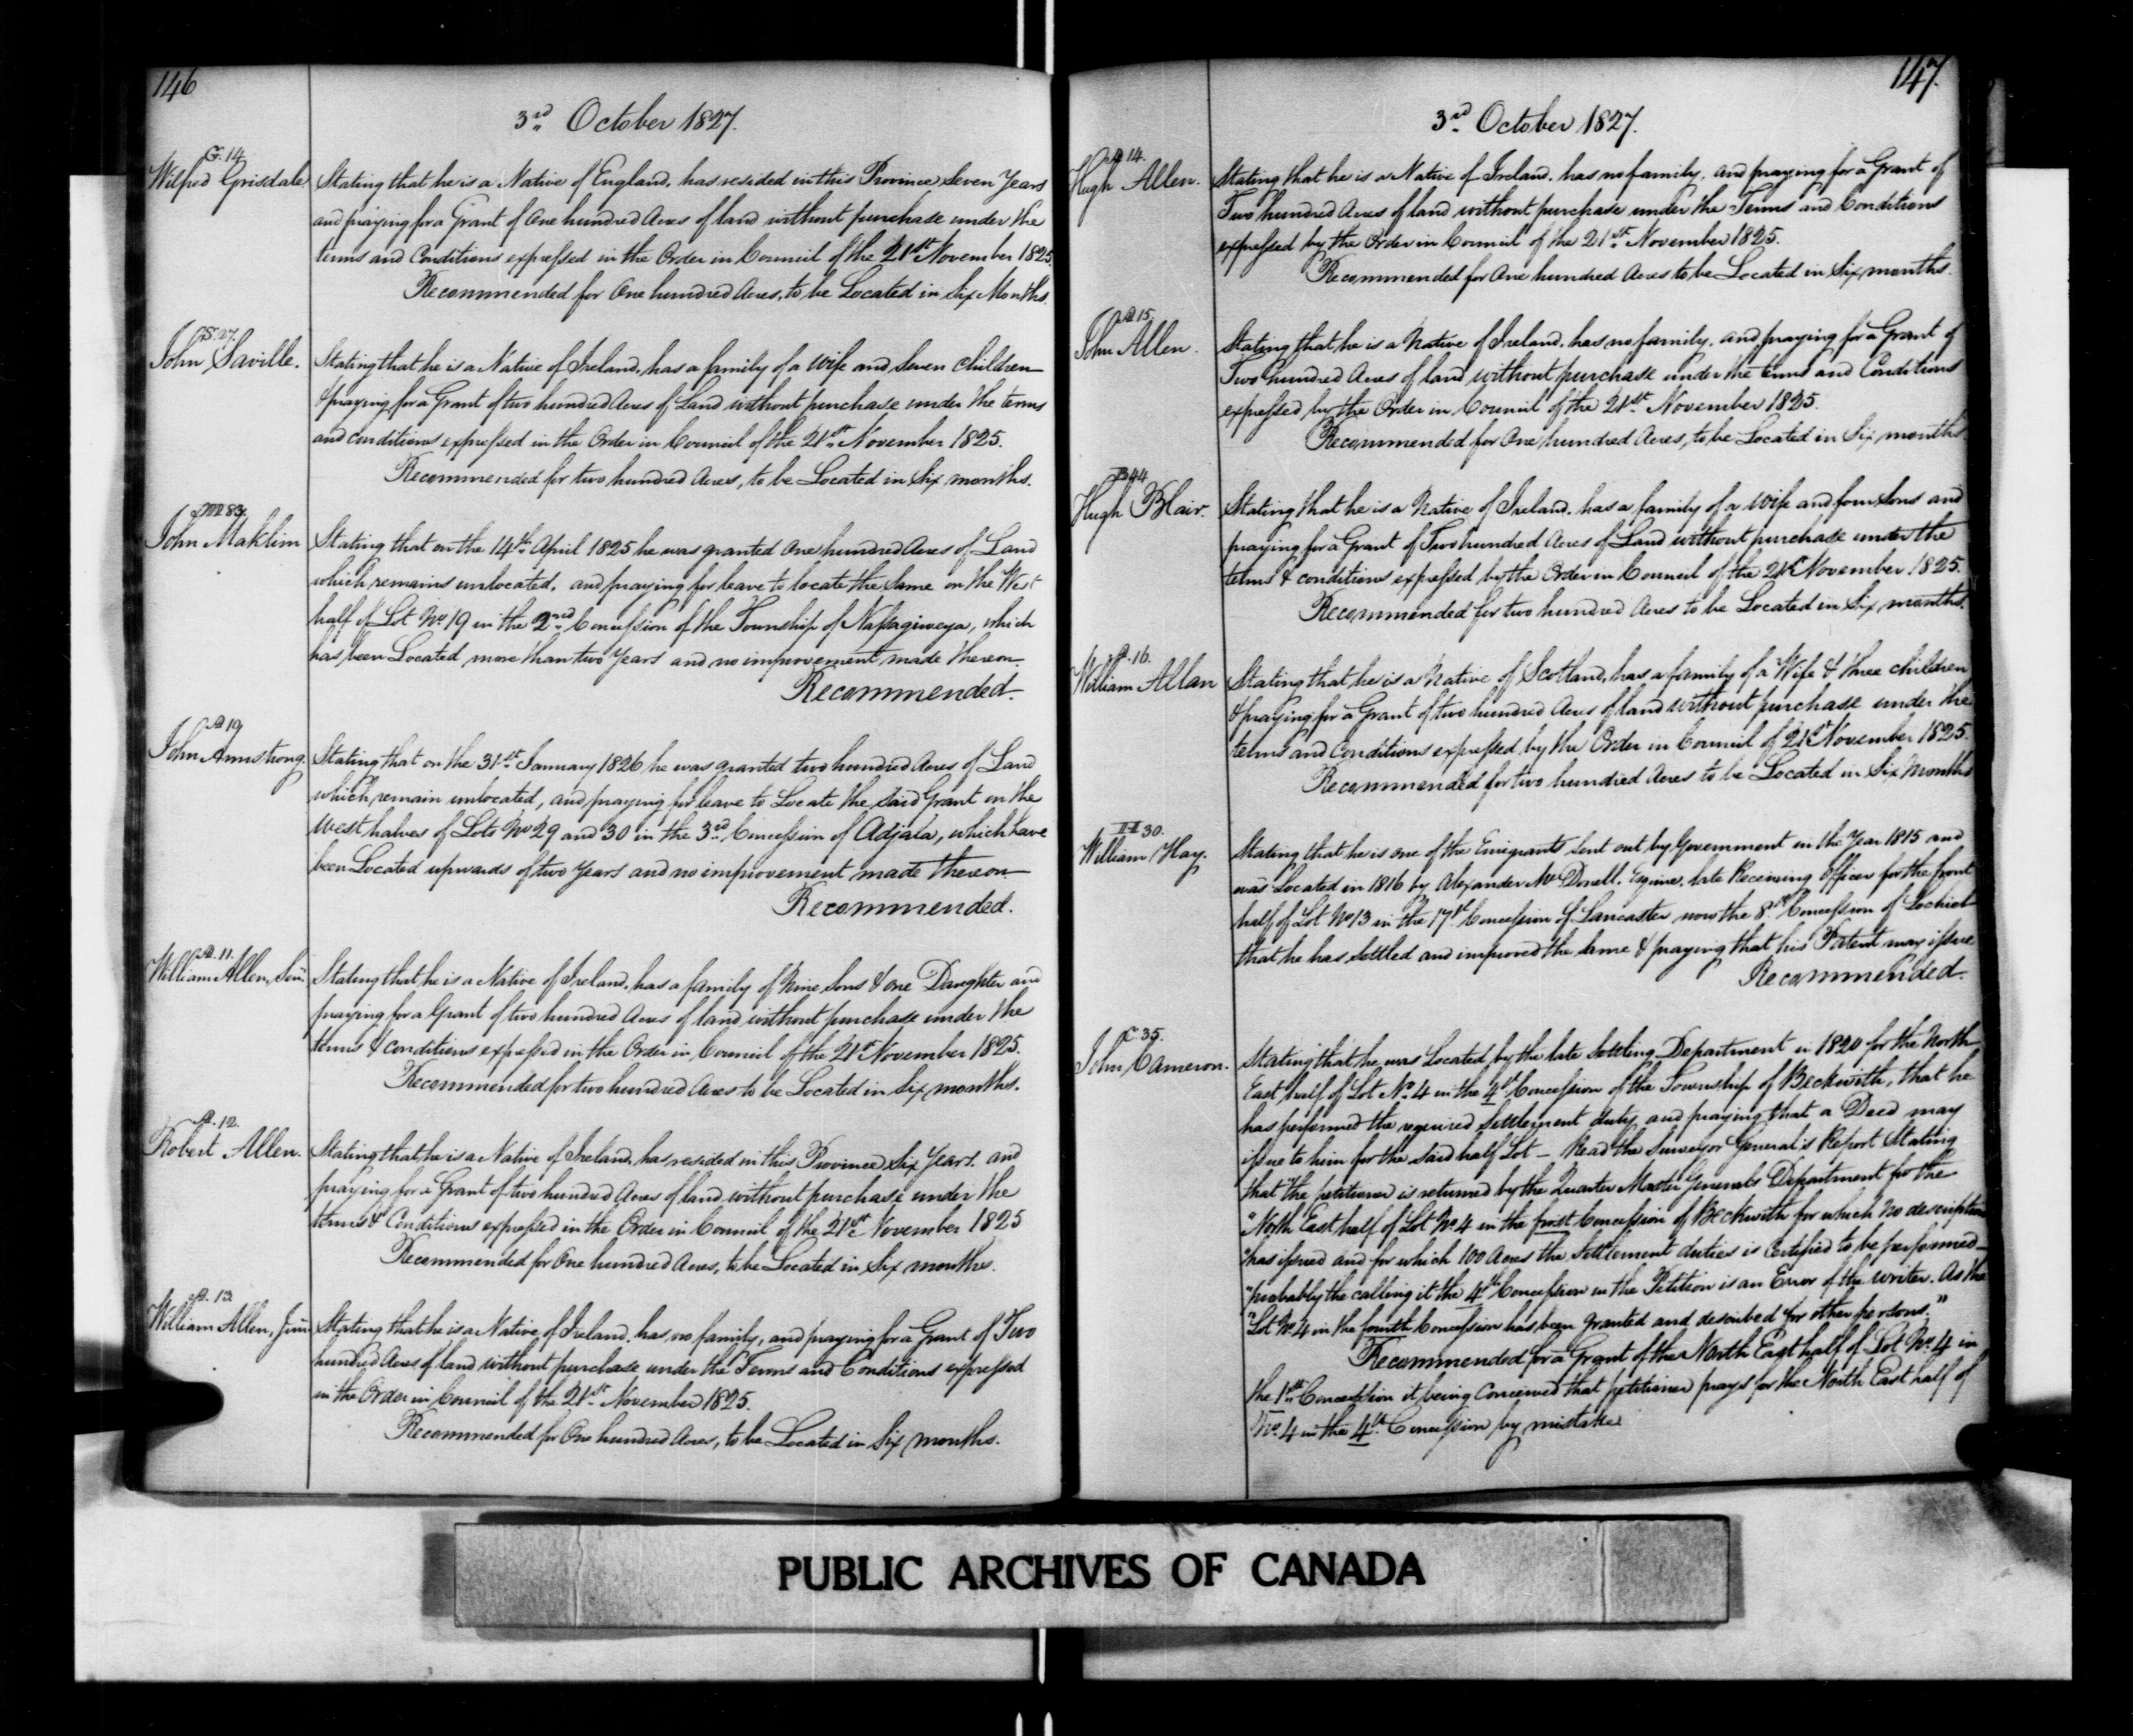 146
3rd October 1827.
G. 14
Wilfred Grisdale
Stating that he is a Native of England, has resided in this Province Seven Years
and praying for a Grant of One hundred Acres of land without purchase under the
terms and Conditions expressed in the Order in Council of the 21st November 1825.
Recommended for One hundred Acres, to be Located in Six Months.
S. 27.
John Saville.
Stating that he is a Native of Ireland, has a family of a Wife and Seven Children
& praying for a Grant of two hundred Acres of Land without purchase under the terms
and conditions expressed in the Order in Council of the 21st November 1825.
Recommended for two hundred Acres, to be Located in Six months.
M 83.
John Maklim
Stating that on the 14th April 1825 he was granted One hundred Acres of Land
which remains unlocated, and praying for leave to locate the Same on the West
half of Lot No 19 in the 2nd Concession of the Township of Nassagiweya, which
has been Located more than two Years and no improvement made thereon.
Recommended.
A 19
John Armstrong.
Stating that on the 31st January 1826 he was granted two hundred Acres of Land
which remain unlocated, and praying for leave to Locate the Said Grant on the
West halves of Lots No 29 and 30 in the 3rd Concession of Adjala, which have
been Located upwards of two Years and no improvement made thereon
Recommended.
A. 11.
William Allen, Senr.
Stating that he is a Native of Ireland, has a family of Nine Sons & one Daughter and
praying for a Grant of two hundred Acres of land without purchase under the
terms & conditions expressed in the Order in Council of the 21st November 1825.
Recommended for two hundred Acres to be Located in Six months.
A. 12.
Robert Allen.
Stating that he is a Native of Ireland, has resided in this Province Six Years. and
praying for a Grant of two hundred Acres of land without purchase under the
terms & Conditions expressed in the Order in Council of the 21st November 1825
Recommended for One hundred Acres, to be Located in Six months.
A. 13.
William Allen, Junr
Stating that he is a Native of Ireland, has no family, and praying for a Grant of Two
hundred Acres of land without purchase under the Terms and Conditions expressed
in the Order in Council of the 21st November 1825.
Recommended for One hundred Acres, to be Located in Six months.
147.
3rd October 1827.
A 14.
Hugh Allen.
Stating that he is a Native of Ireland. has no family, and praying for a Grant of
Two hundred Acres of land without purchase under the Terms and Conditions
expressed by the Order in Council of the 21st November 1825.
Recommended for One hundred Acres to be Located in Six months.
A 15.
John Allen.
Stating that he is a Native of Ireland, has no family, and praying for a Grant of
Two hundred Acres of land without purchase under the terms and Conditions
expressed by the Order in Council of the 21st November 1825.
Recommended for One hundred Acres, to be Located in Six months.
B 44
Hugh Blair.
Stating that he is a Native of Ireland. has a family of a Wife and four Sons and
praying for a Grant of Two hundred Acres of Land without purchase under the
terms & conditions expressed by the Order in Council of the 21st November 1825.
Recommended for two hundred Acres to be Located in Six months.
A. 16.
William Allan
Stating that he is a Native of Scotland, has a family of a Wife & three children
& praying for a Grant of two hundred Acres of land without purchase under the
terms and Conditions expressed by the Order in Council of 21st November 1825.
Recommended for two hundred Acres to be Located in Six Months
H 30.
William Hay.
Stating that he is one of the Emigrants Sent out by Government in the Year 1815 and
was Located in 1816 by Alexander McDonell. Esquire, late Receiving Officer for the front
half of Lot No 13 in the 17th Concession of Lancaster now the 8th Concession of Lochiel
that he has settled and improved the same & praying that his Patent may issue
Recommended.
C 35.
John Cameron.
Stating that he was Located by the late Settling Department in 1820 for the North
East half of Lot No. 4 in the 4th Concession of the Township of Beckwith, that he
has performed the required Settlement duty and praying that a Deed may
issue to him for the Said half Lot – Read the Surveyor General's Report Stating
that the petitioner is returned by the Quarter Master Generals Department for the
"North East half of Lot No. 4 in the first Concession of Beckwith for which no description
"has issued and for which 100 Acres the Settlement duties is Certified to be performed –
"probably the calling it the 4th Concession in the Petition is an Error of the writer. As the
"Lot No. 4 in the fourth Concession has been granted and described for other persons."
Recommended for a Grant of the North East half of Lot No. 4 in
the 1st Concession it being Conceived that petitioner prays for the North East half of
No. 4 in the 4th Concession by mistake
PUBLIC ARCHIVES OF CANADA